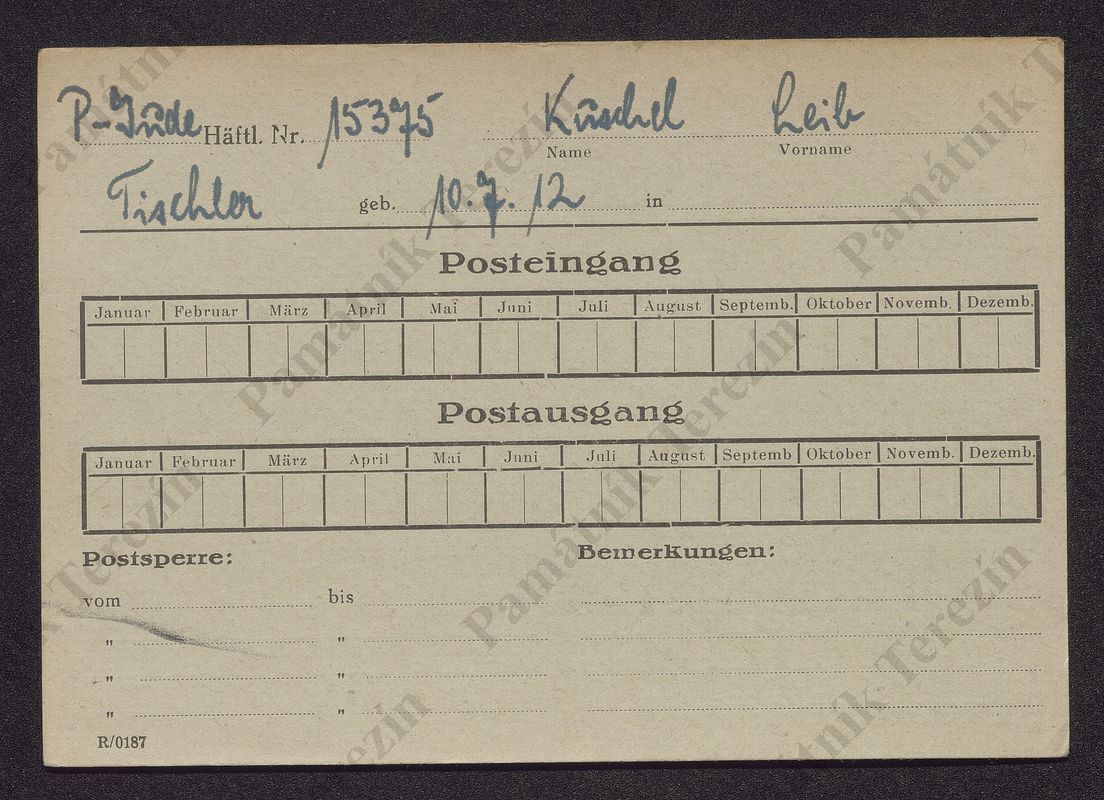 P-Jude Häftl. Nr. 15375 Kuschel Leib
Name Vorname
Tischler geb. 10.7.12 in
Posteingang
Januar Februar März April Mai Juni Juli August Septemb. Oktober Novemb. Dezemb.
Postausgang
Januar Februar März April Mai Juni Juli August Septemb Oktober Novemb. Dezemb.
Postsperre: Bemerkungen:
vom bis
" "
" "
" "
R/0187
Památník Terezín